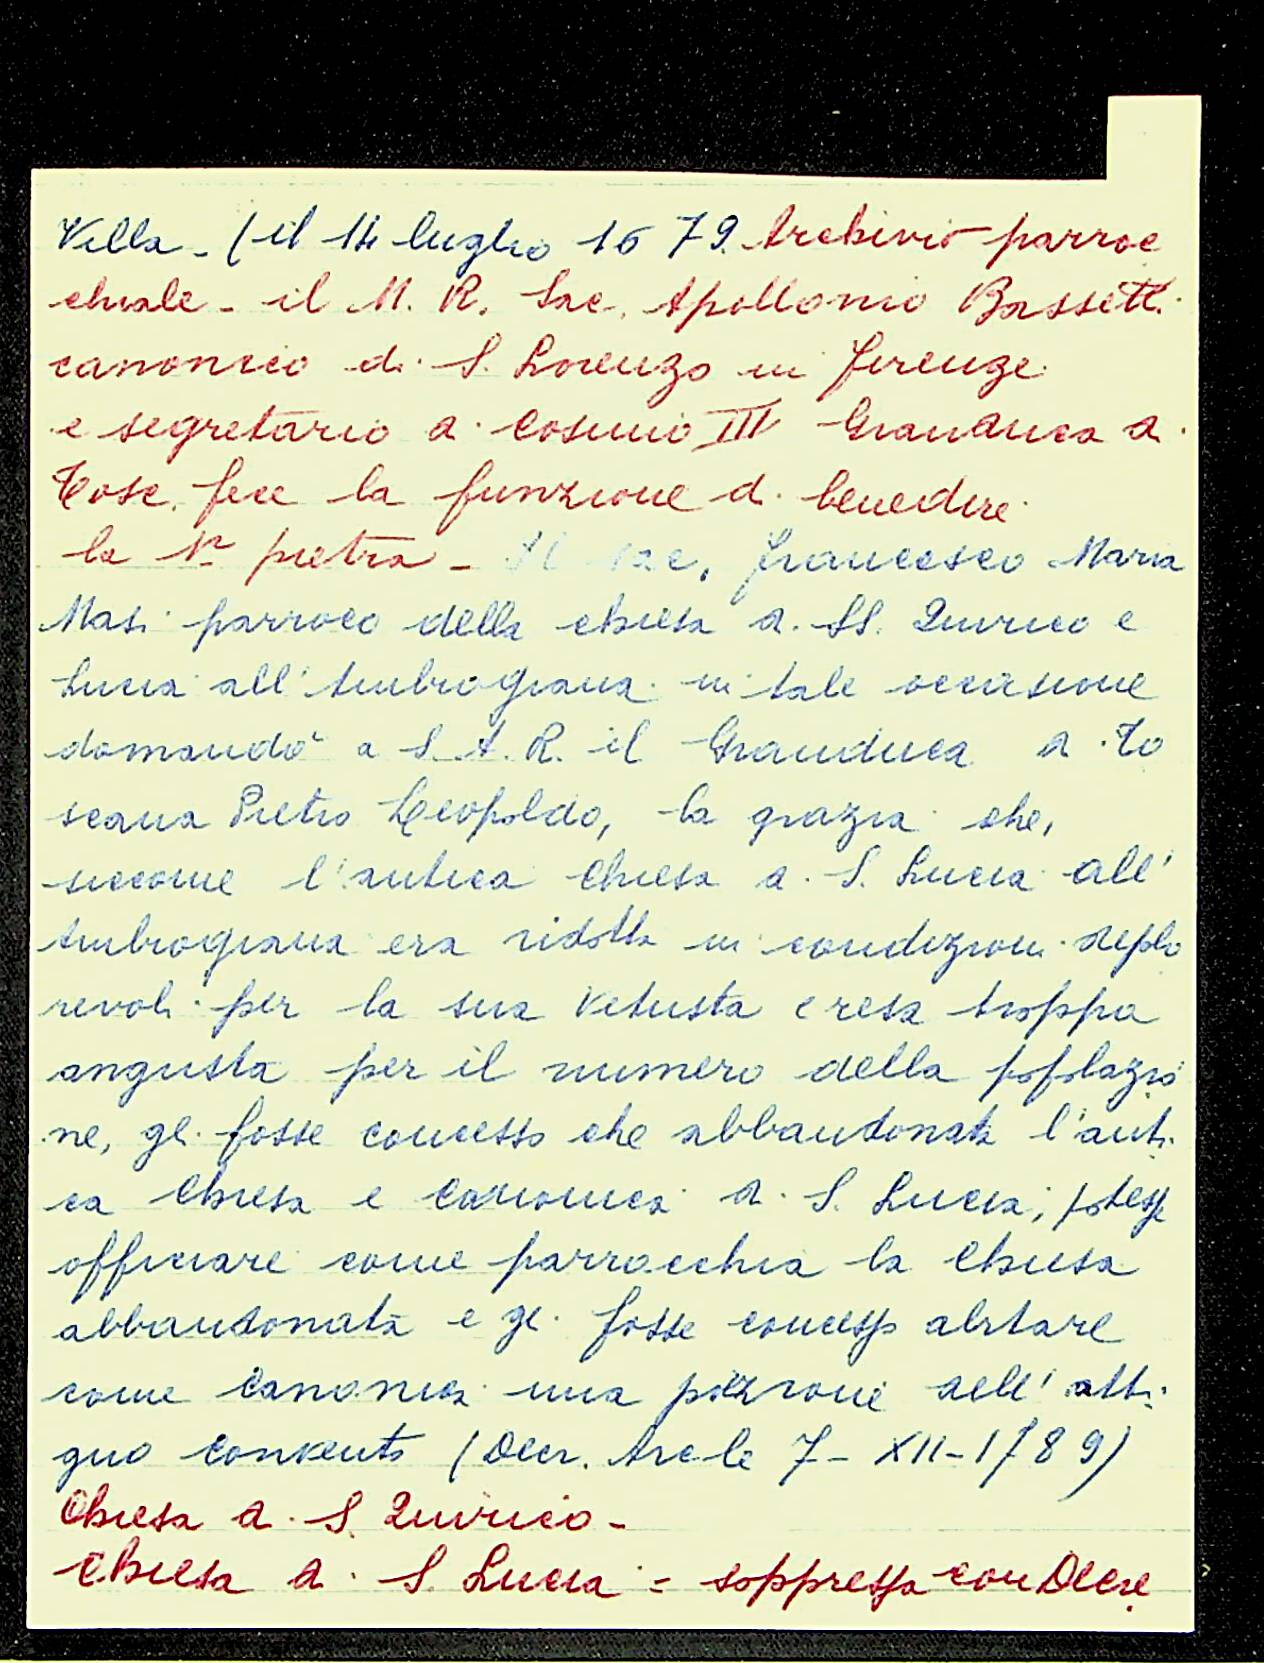 Villa - (il 14 luglio 1679. Archivio parroc
chiale - il M. R. Sac. Apollonio Bassetti
canonico di S. Lorenzo in Firenze
e segretario di Cosimo III Granduca di
Tosc. fece la funzione di benedire
la 1ª pietra - Il sac. Francesco Maria
Masi parroco della chiesa di SS. Quirico e
Lucia all'Ambrogiana in tale occasione
domandò a S. A. R. il Granduca di To
scana Pietro Leopoldo, la grazia che,
siccome l'antica Chiesa di S. Lucia all'
Ambrogiana era ridotta in condizioni deplo
revoli per la sua vetustà e resa troppo
angusta per il numero della popolazio
ne, gli fosse concesso che abbandonata l'anti
ca Chiesa e canonica di S. Lucia, potesse
officiare come parrocchia la Chiesa
abbandonata e gli fosse concesso abitare
come canonica una porzione dell' atti
guo convento (Decr. Arc.le 7-XII-1789)
Chiesa di S. Quirico -
Chiesa di S. Lucia = soppressa con Decre